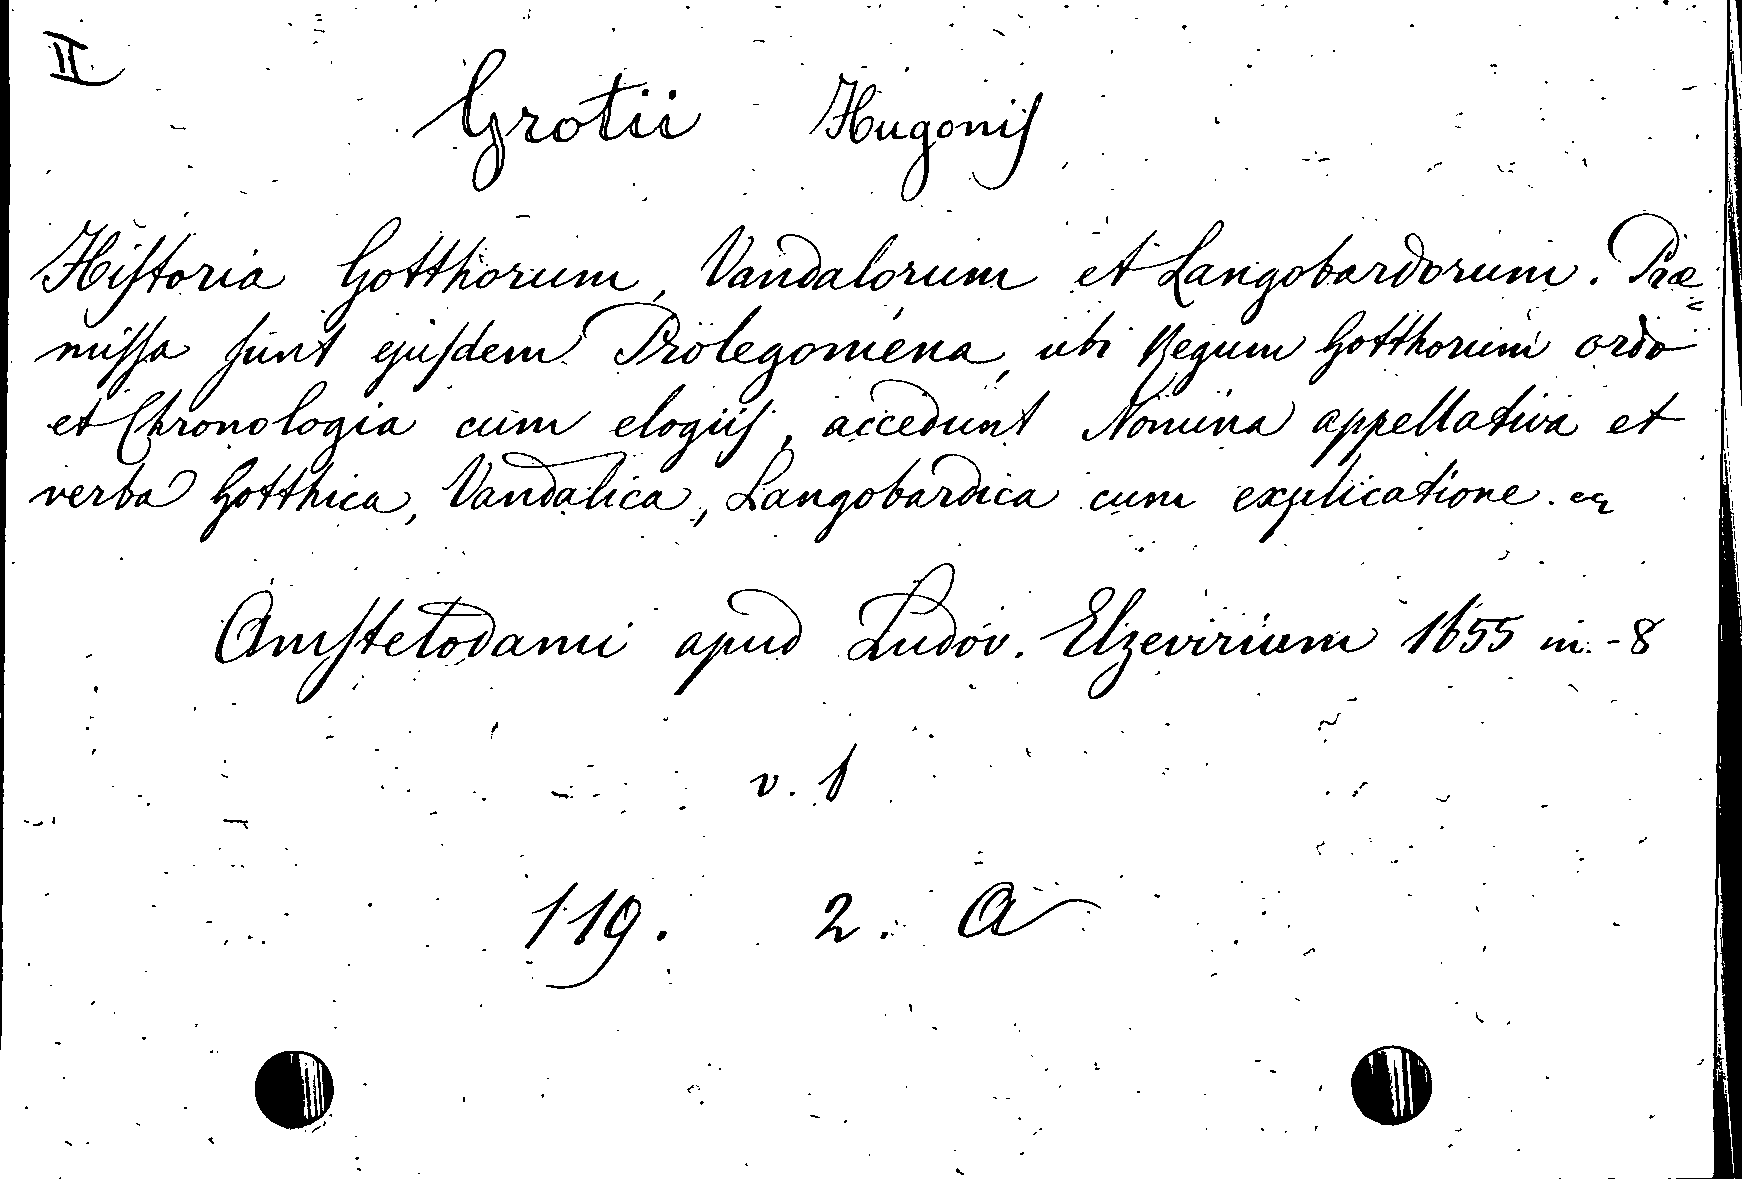 II.
Grotii Hugonis
Historia Gotthorum, Vandalorum et Langobardorum. Prae=
missa sunt ejusdem Prolegomena, ubi Regum Gotthorum ordo
et Chronologia cum elogiis, accedunt Nomina appellativa et
verba Gotthica, Vandalica, Langobardica cum explicatione.
Amstelodami apud Ludov. Elzevirium 1655 in.-8
v. 1
119. 2. a